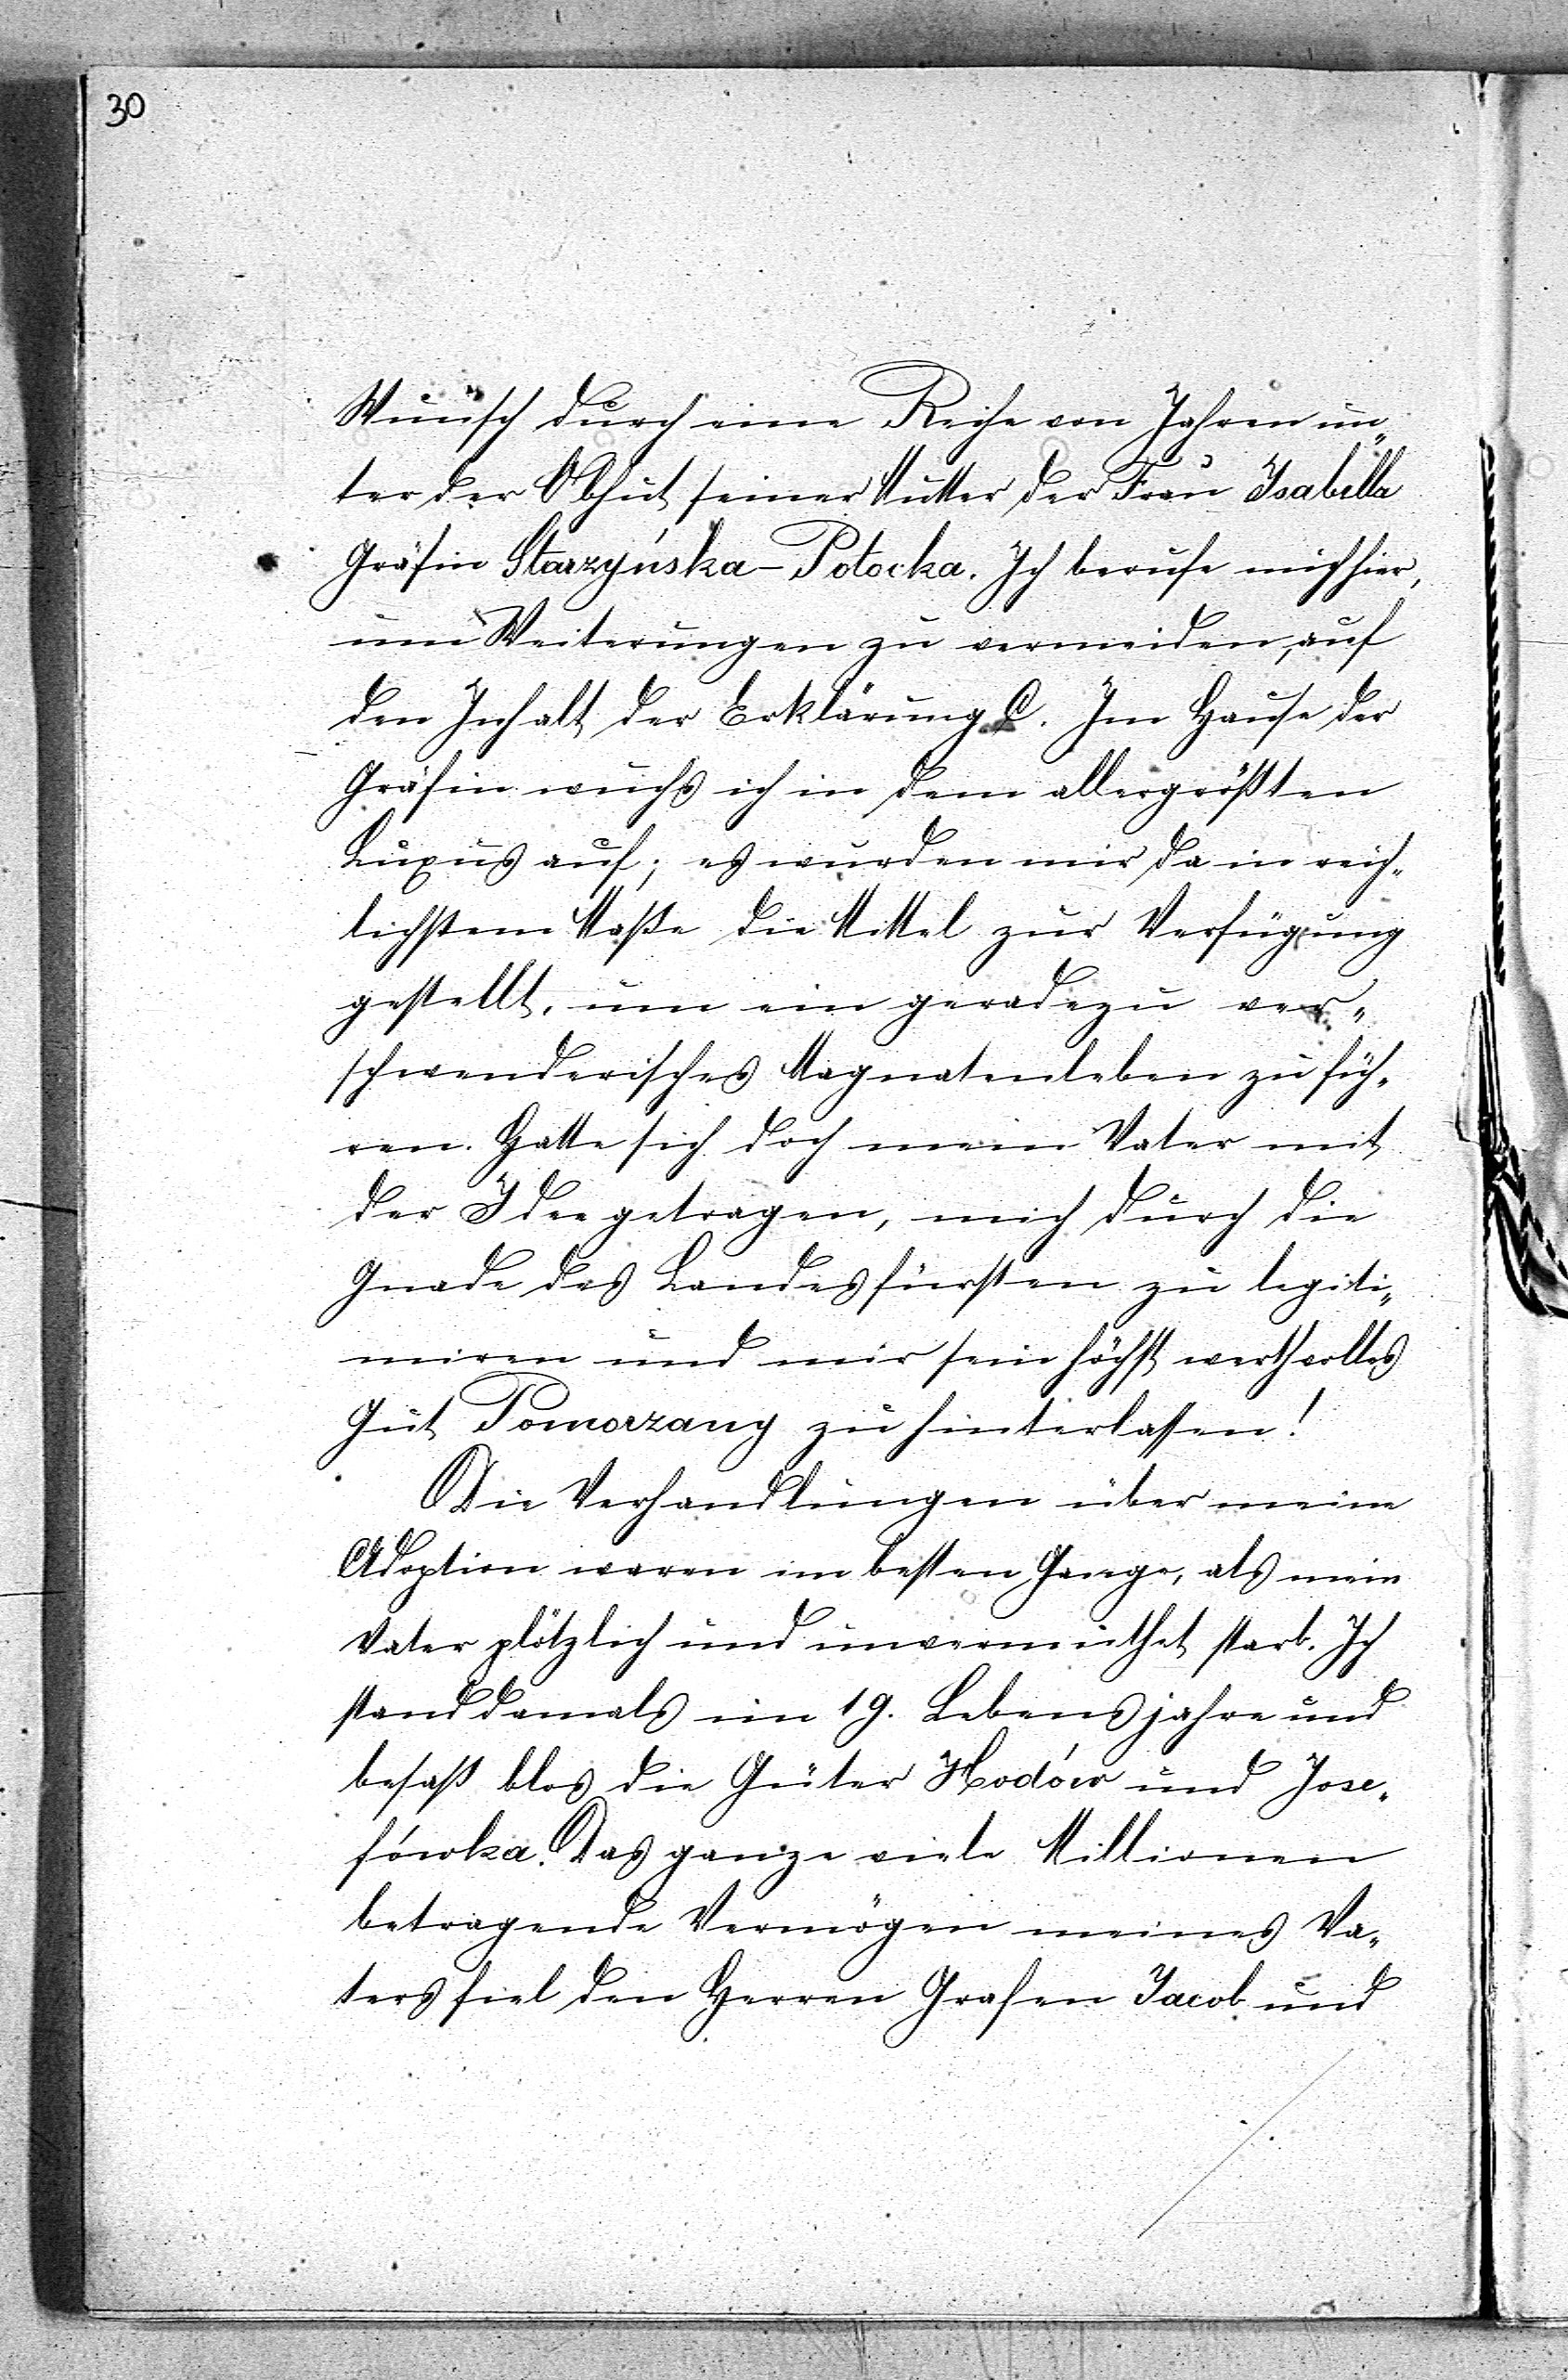 30
Wunsch durch eine Reihe von Jahren un„
ter der Obhut seiner Mutter der Frau Isabella
Gräfin Starzyńska-Potocka. Ich berufe mich hier,
um Weiterungen zu vermeiden, auf
den Inhalt der Erklärung C. Im Hause der
Gräfin wuchs ich in dem allergrößten
Luxus auf; es wurden mir da in reich„
lichstem Maße die Mittel zur Verfügung
gestellt, um ein geradezu ver„
schwenderisches Magnatenleben zu füh„
ren. Hatte sich doch mein Vater mit
der Idee getragen, mich durch die
Gnade des Landesfürsten zu legiti„
miren und mir sein höchst werthvolles
Gut Pomorzany zu hinterlassen!
Die Verhandlungen über meine
Adoption waren im besten Gange, als mein
Vater plötzlich und unvermuthet starb. Ich
stand damals im 19. Lebensjahre und
besaß blos die Güter Hodów und Jose„
fówka. Das ganze viele Millionen
betragende Vermögen meines Va„
ters fiel den Herren Grafen Jacob und
./.